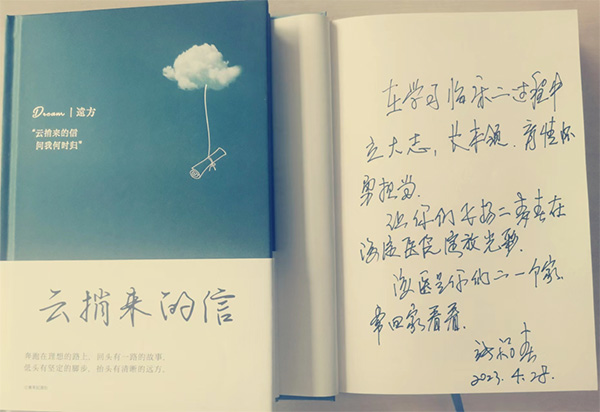 Dream | 遠方
“云捎来的信
问我何时归”
云捎来的信
奔跑在理想的路上，回头有一路的故事，
低头有坚定的脚步，抬头有清晰的远方。
在学习临床的过程中
立大志，长本领，有情怀
勇担当.
让你们飞扬的青春在
海淀医院绽放光彩.
海医是你们的一个家.
常回家看看.
2023.4.28.